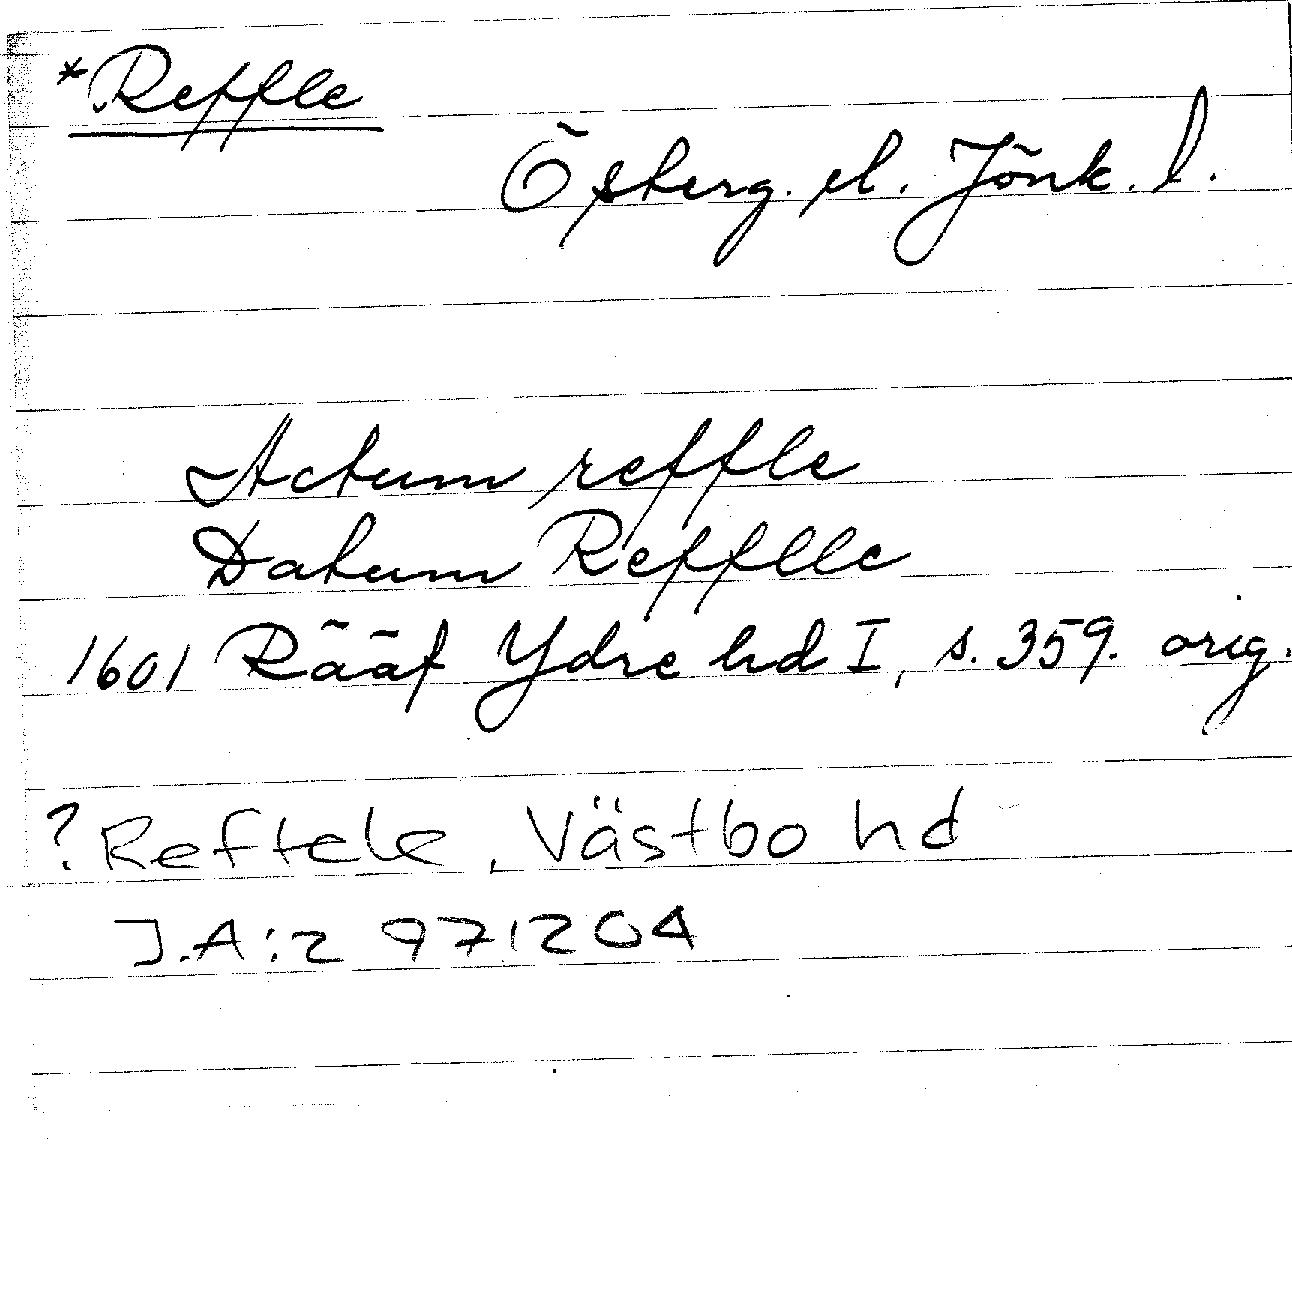 *Reffle
Österg. el. Jönk. l.
Actum reffle
Datum Refflle
1601 Rääf Ydre hd I, s. 359. orig.
? Reftele, Västbo hd
J.A:z 971204